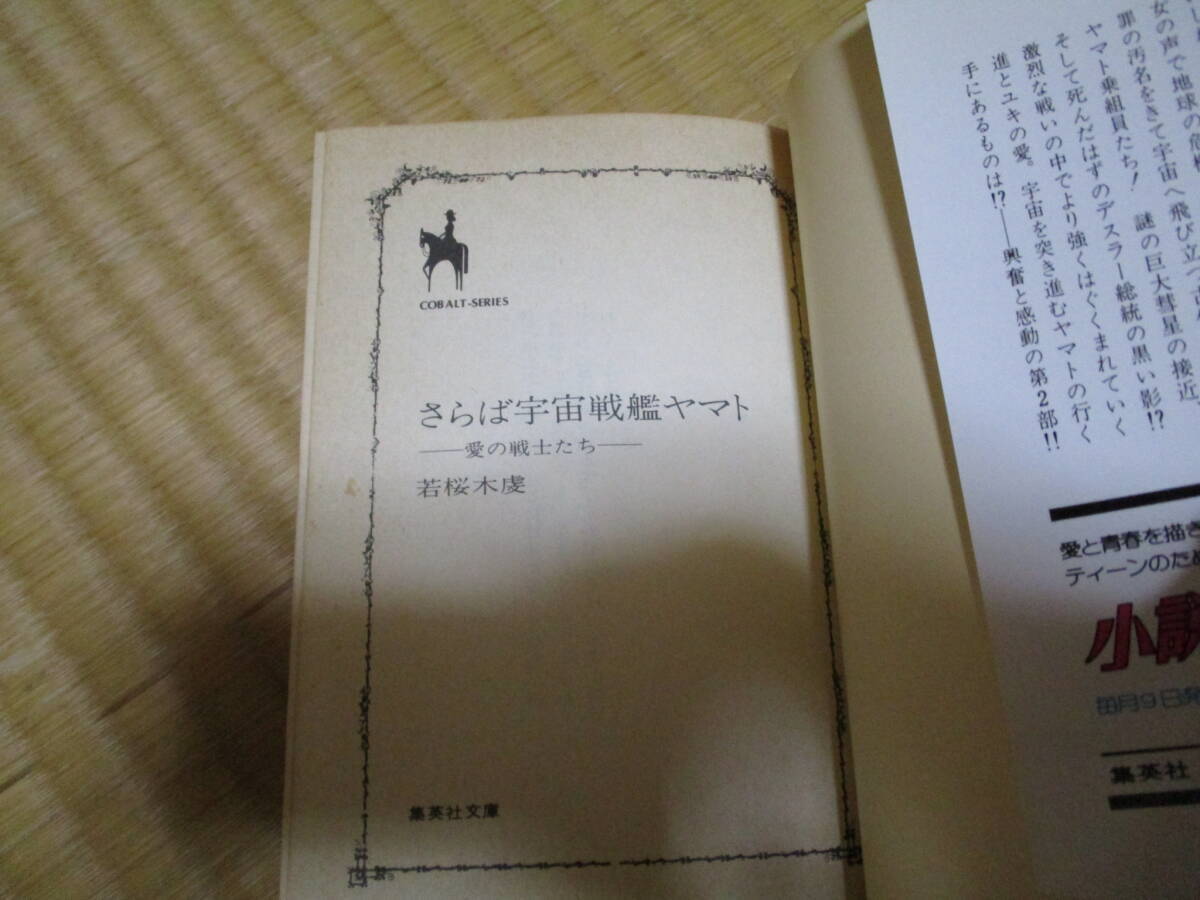 COBALT-SERIES
さらば宇宙戦艦ヤマト
——愛の戦士たち——
若桜木虔
集英社文庫
女の声で地球の危
罪の汚名をきて宇宙へ飛び立つ
ヤマト乗組員たち! 謎の巨大彗星の接近
そして死んだはずのデスラー総統の黒い影!?
激烈な戦いの中でより強くはぐくまれていく
進とユキの愛。宇宙を突き進むヤマトの行く
手にあるものは!?——興奮と感動の第2部!!
愛と青春を描き
ティーンのため
小説
毎月9日発
集英社